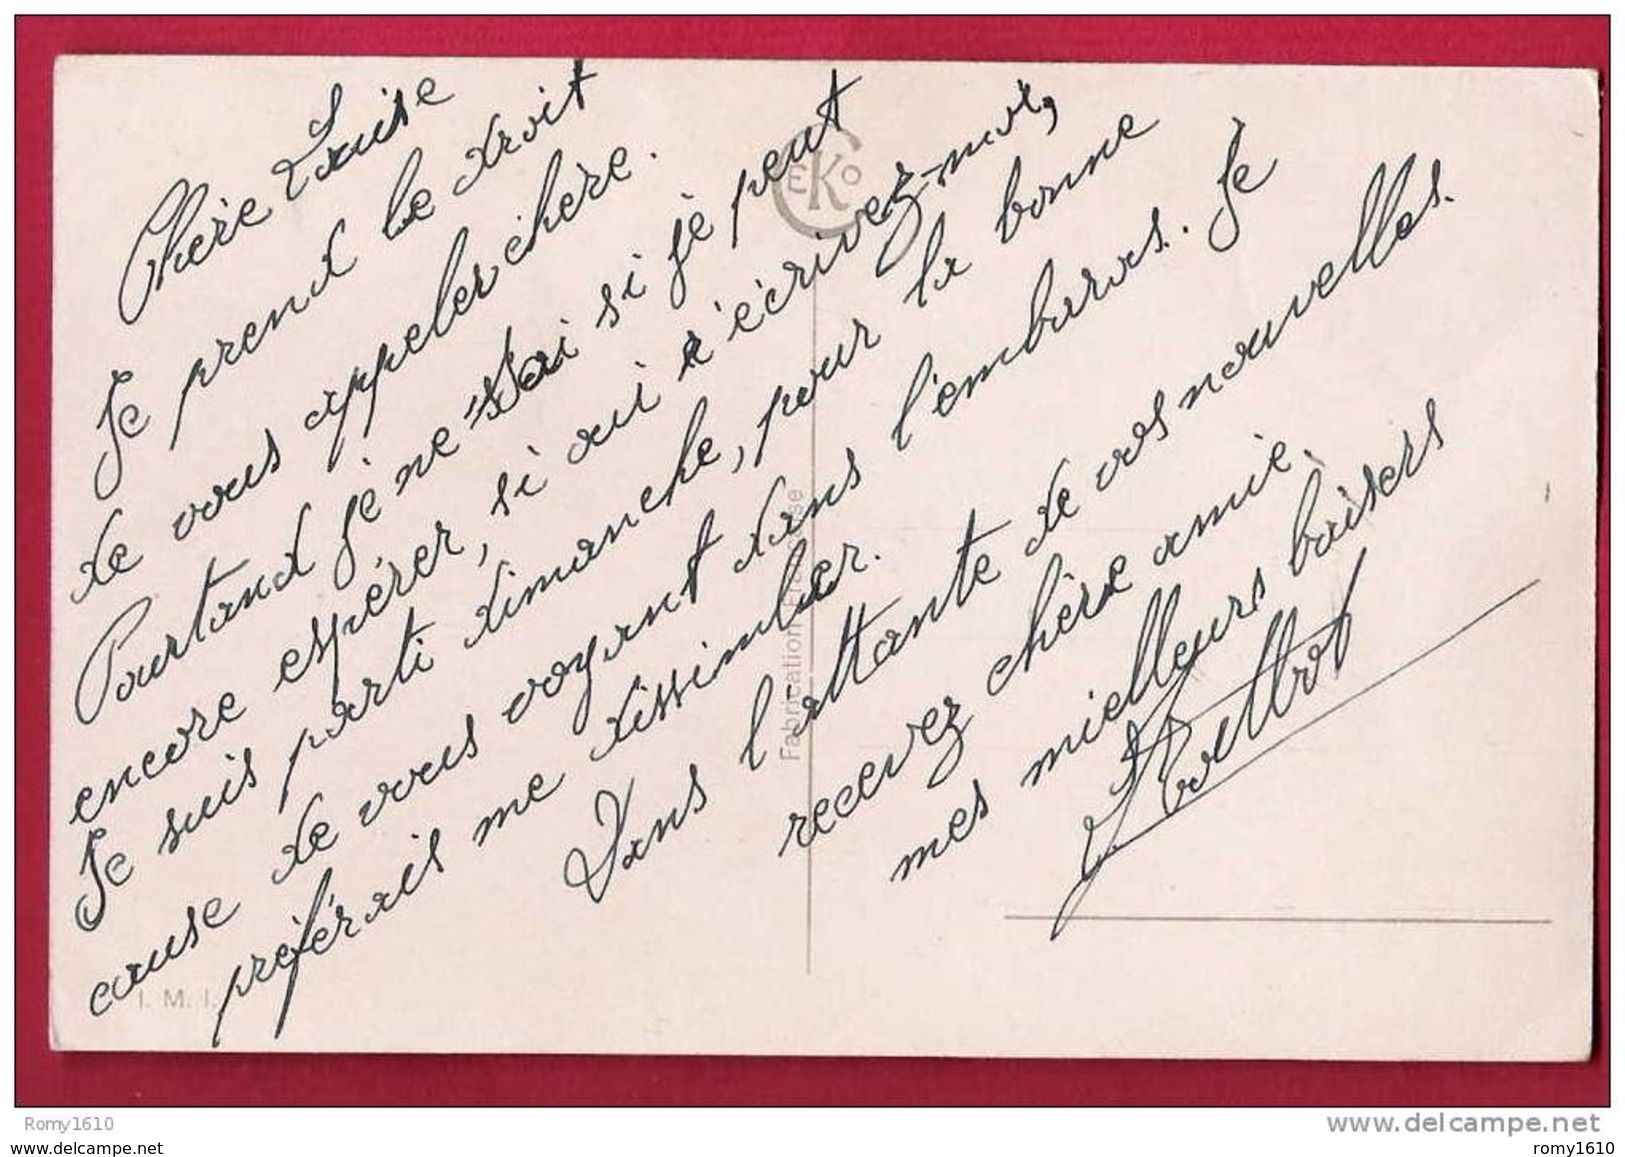 Chère Louise
Je prend le droit
de vous appeler chère.
Pourtand je ne sai si je peut
encore espérer, si oui écrivez-moi,
Je suis parti dimanche, pour la bonne
cause de vous voyant dans l'embaras. Je
préférais me dissimuler.
Dans l'attante de vos nouvelles.
recevez chère amie,
mes mielleurs baisers
EKO
Fabrication
I. M. I.
Romy1610
delcampe.net
romy1610
romy1610